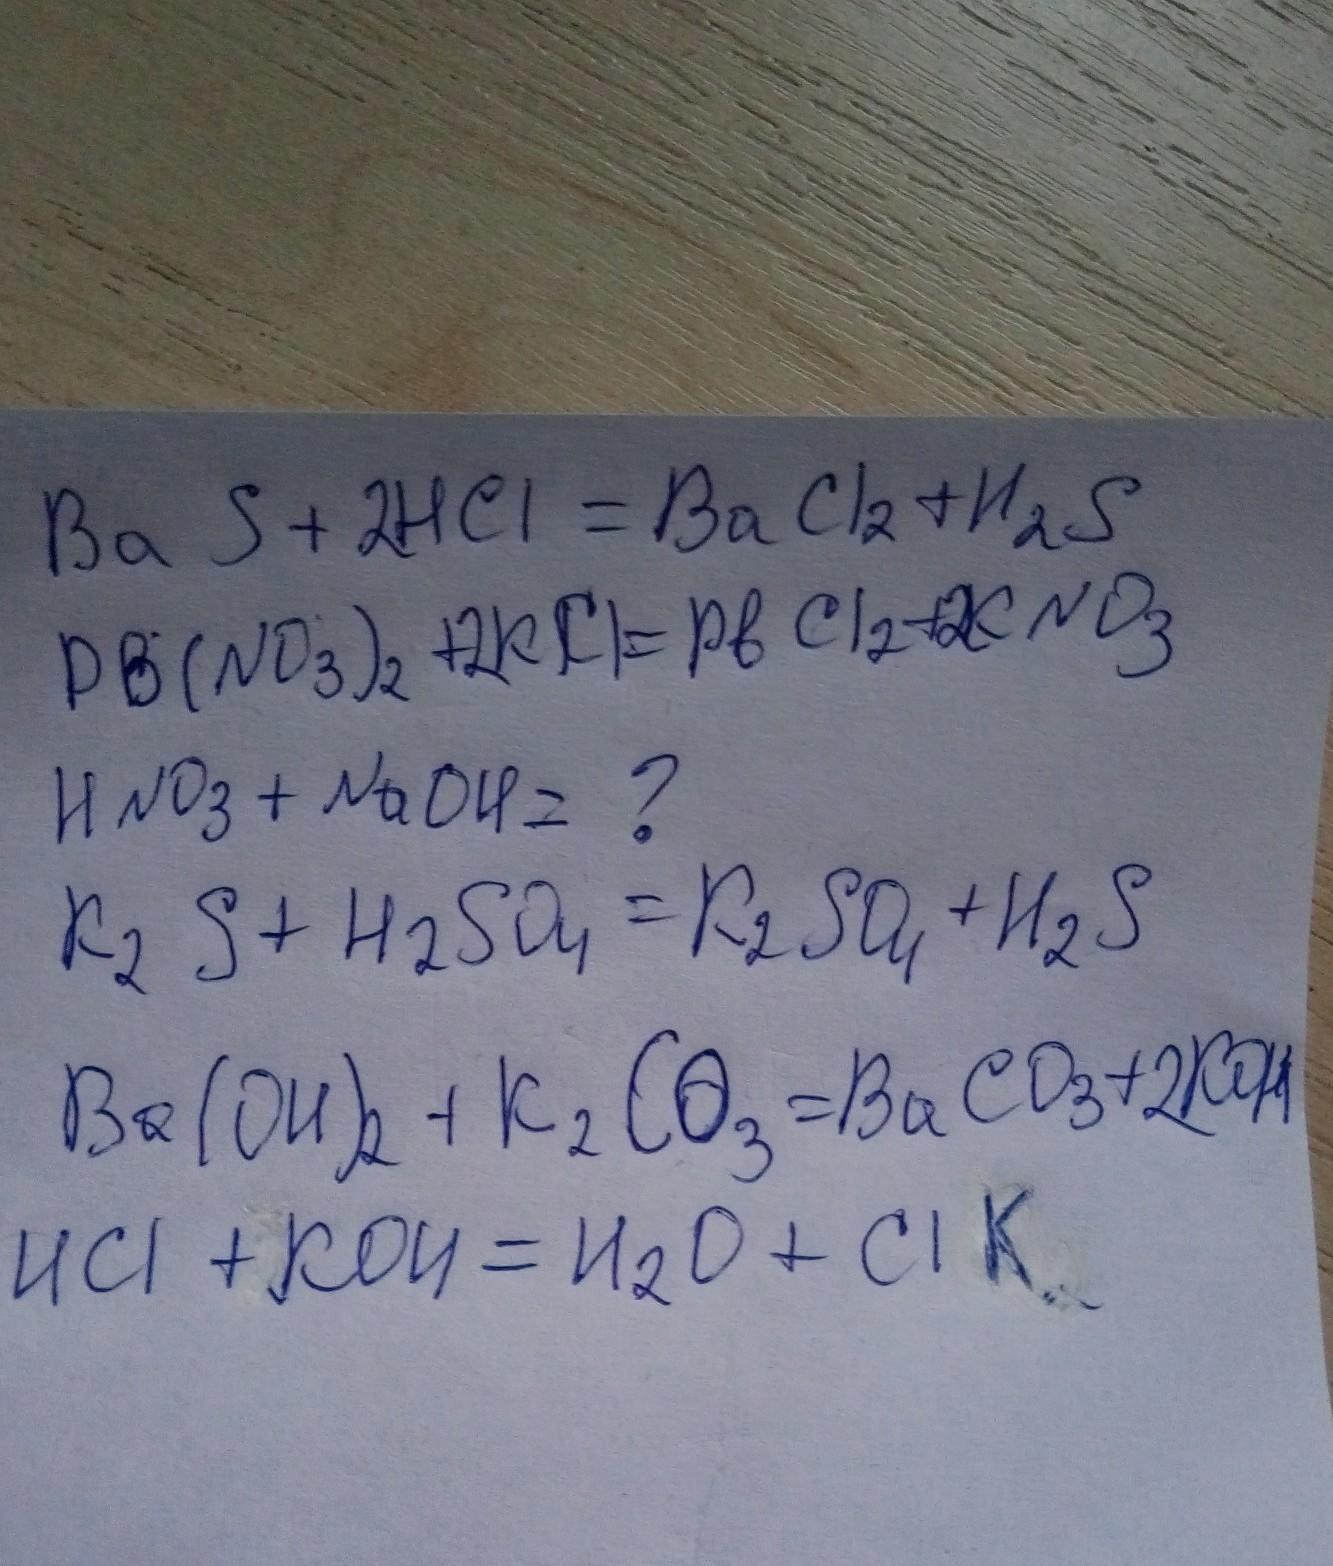 BaS + 2HCl = BaCl2 + H2S
PB(NO3)2 + 2KCl = Pb Cl2 + 2KNO3
HNO3 + NaOH = ?
K2S + H2SO4 = K2SO4 + H2S
Ba(OH)2 + K2CO3 = BaCO3 + 2KOH
HCl + KOH = H2O + ClK